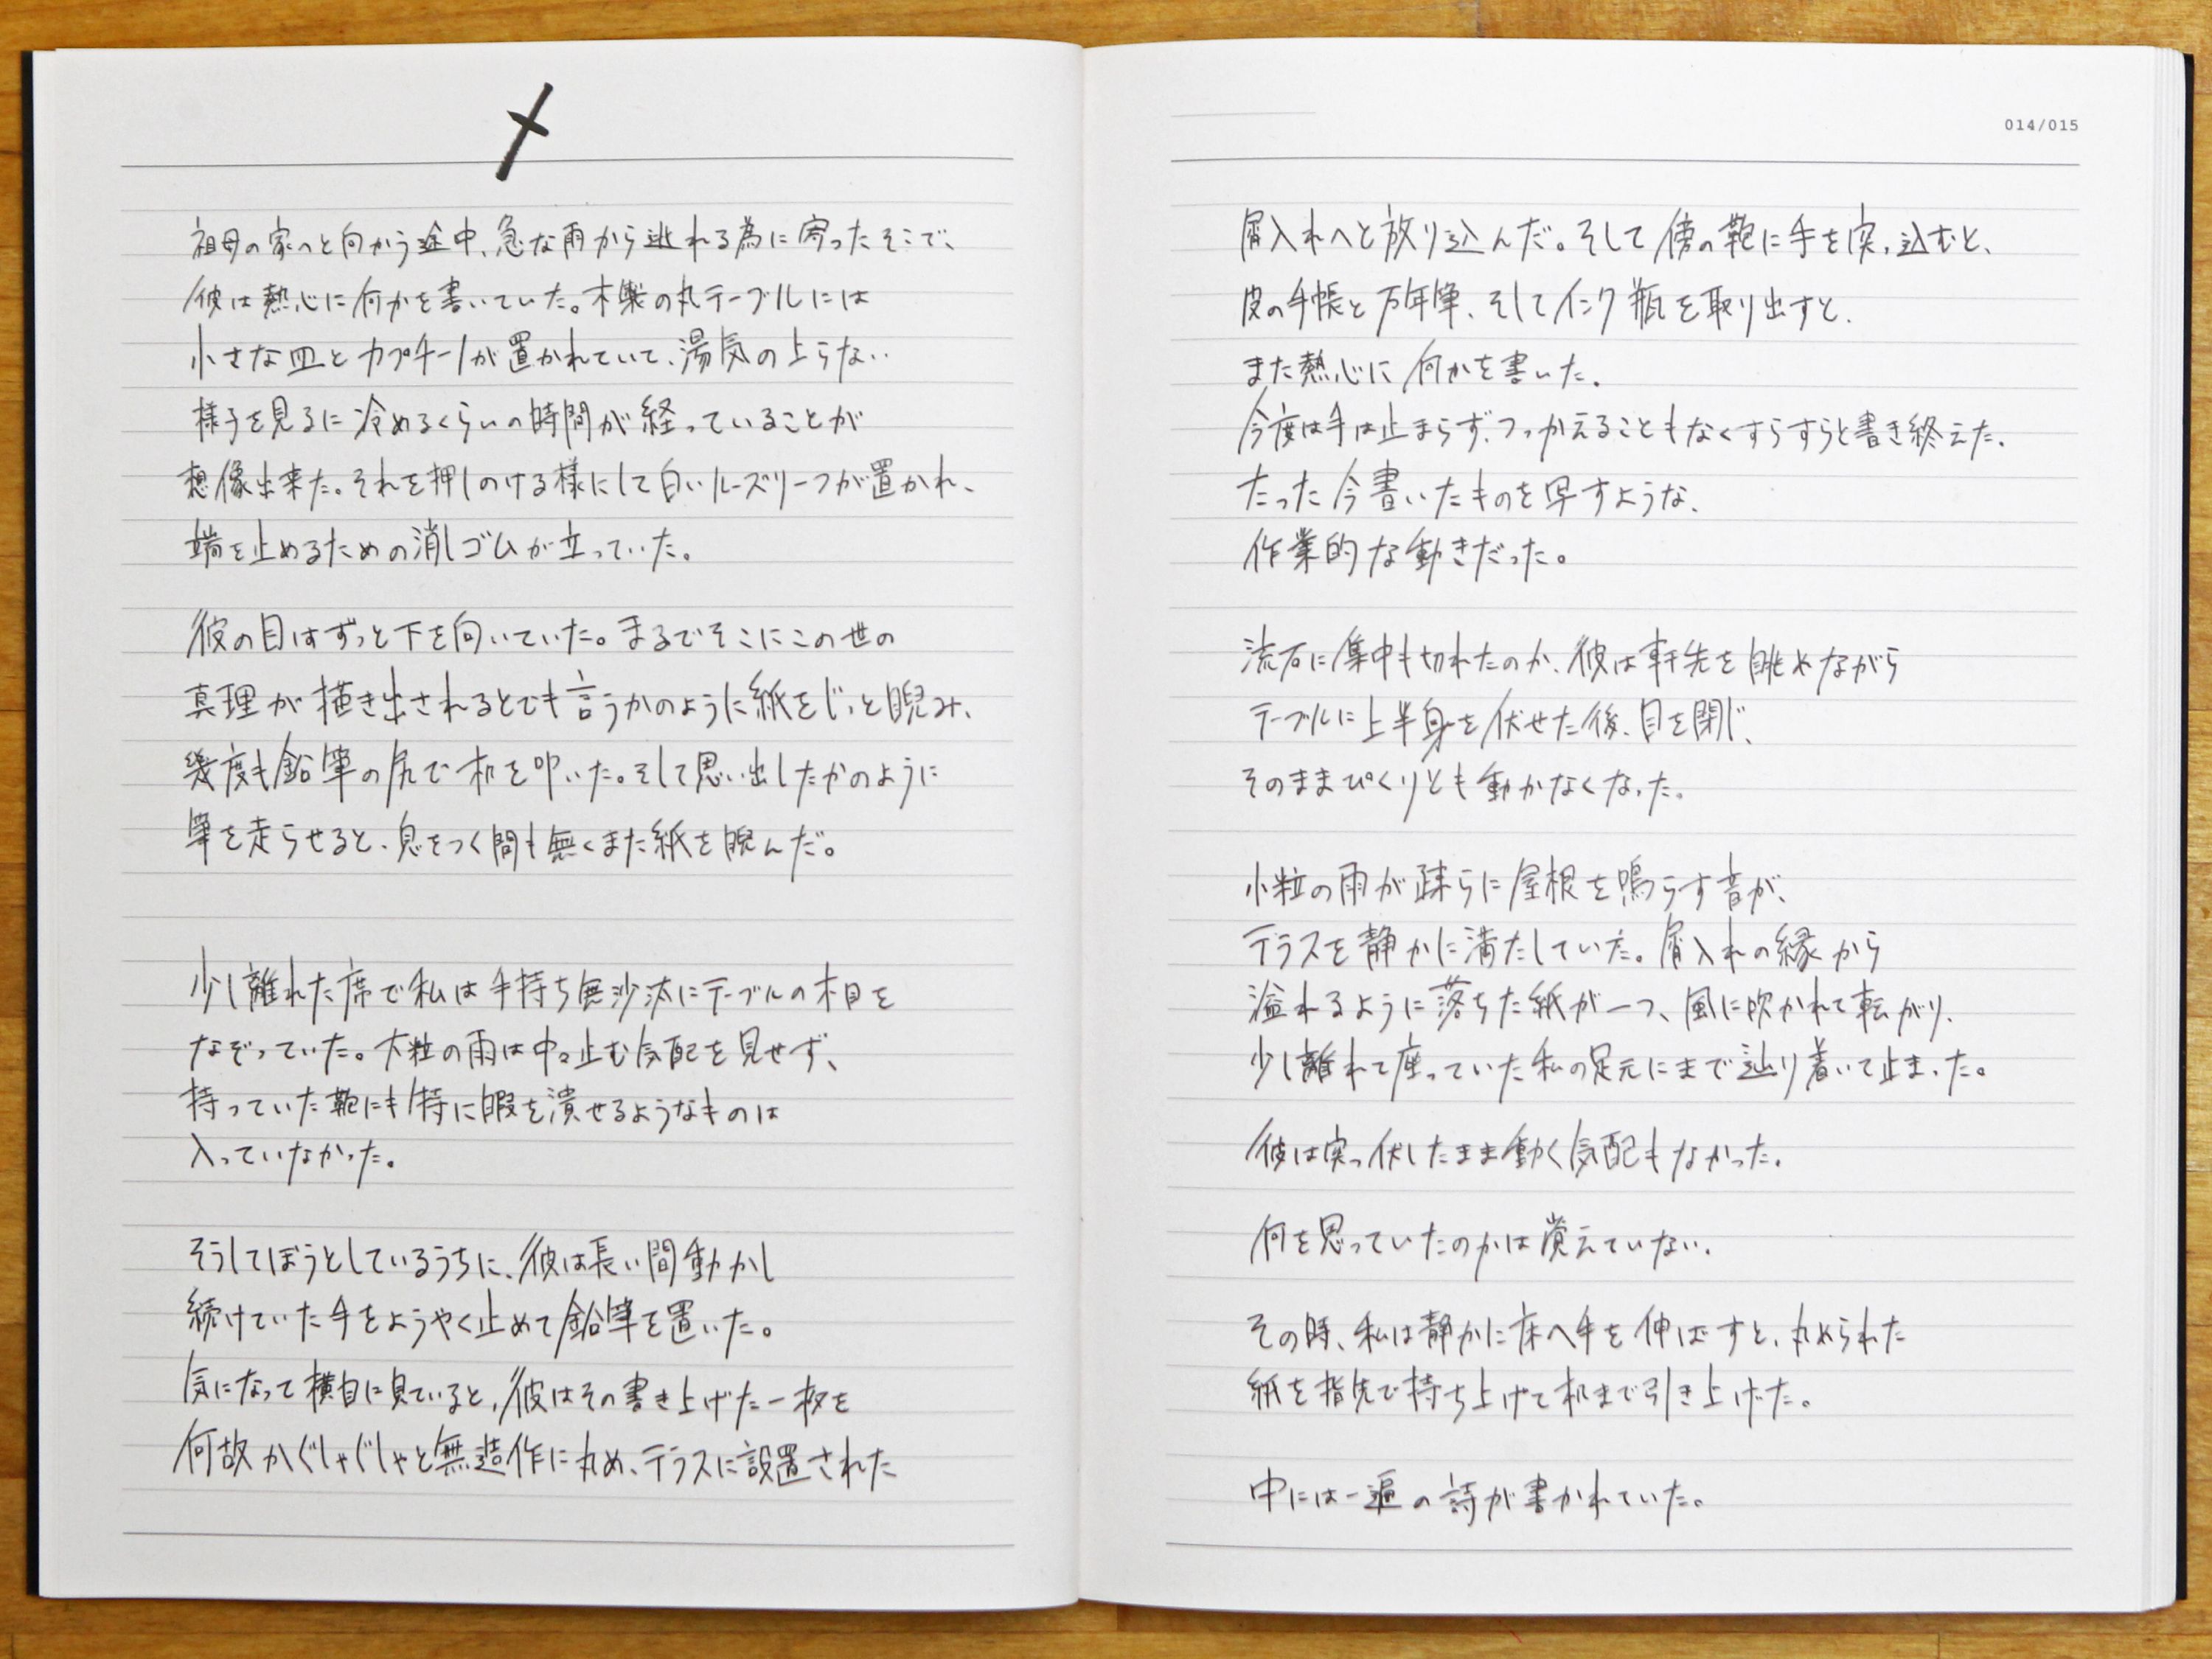 祖母の家へと向かう途中、急な雨から逃れる為に寄ったそこで、
彼は熱心に何かを書いていた。木製の丸テーブルには
小さな皿とカプチーノが置かれていて、湯気の上らない
様子を見るに冷めるくらいの時間が経っていることが
想像出来た。それを押しのける様にして白いルーズリーフが置かれ、
端を止めるための消しゴムが立っていた。
彼の目はずっと下を向いていた。まるでそこにこの世の
真理が描き出されるとでも言うかのように紙をじっと睨み、
幾度も鉛筆の尻で机を叩いた。そして思い出したかのように
筆を走らせると、息をつく間も無くまた紙を睨んだ。
少し離れた席で私は手持ち無沙汰にテーブルの木目を
なぞっていた。大粒の雨は中々止む気配を見せず、
持っていた鞄にも特に暇を潰せるようなものは
入っていなかった。
そうしてぼうとしているうちに、彼は長い間動かし
続けていた手をようやく止めて鉛筆を置いた。
気になって横目に見ていると、彼はその書き上げた一枚を
何故かぐしゃぐしゃと無造作に丸め、テラスに設置された
014/015
屑入れへと放り込んだ。そして傍の鞄に手を突っ込むと、
皮の手帳と万年筆、そしてインク瓶を取り出すと、
また熱心に何かを書いた。
今度は手は止まらず、つっかえることもなくすらすらと書き終えた。
たった今書いたものを写すような、
作業的な動きだった。
流石に集中も切れたのか、彼は軒先を眺めながら
テーブルに上半身を伏せた後、目を閉じ、
そのままぴくりとも動かなくなった。
小粒の雨が疎らに屋根を鳴らす音が、
テラスを静かに満たしていた。屑入れの縁から
溢れるように落ちた紙が一つ、風に吹かれて転がり、
少し離れて座っていた私の足元にまで辿り着いて止まった。
彼は突っ伏したまま動く気配もなかった。
何を思っていたのかは覚えていない。
その時、私は静かに床へ手を伸ばすと、丸められた
紙を指先で持ち上げて机まで引き上げた。
中には一遍の詩が書かれていた。